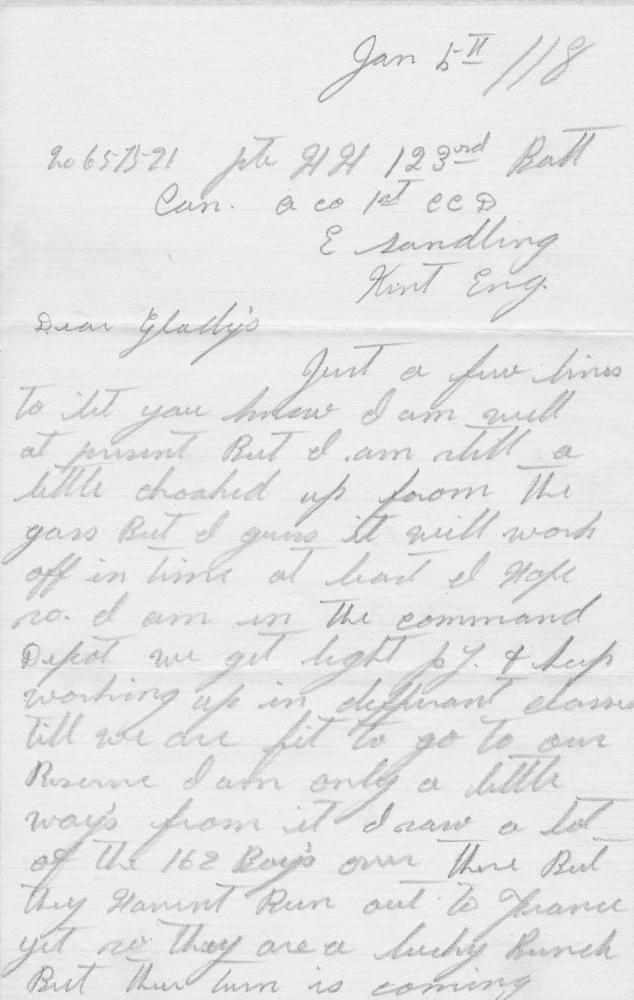 Jan 5th /18
No 657521 pte HH 123rd Batt
Can. a co 1st CCD
E Sandling
Kint Eng.
Dear Glady's
Just a few lines
to let you know I am well
at present But I am still a
little choaked up from the
gass But I guess it will work
off in time at least I Hope
so. I am in the command
Depot we get light p.y. & keep
working up in diffrant classes
till we are fit to go to our
Reserve I am only a little
way's from it I saw a lot
of the 162 Boy's over there But
they Havent Been out to France
yet so they are a lucky Bunch
But their turn is coming